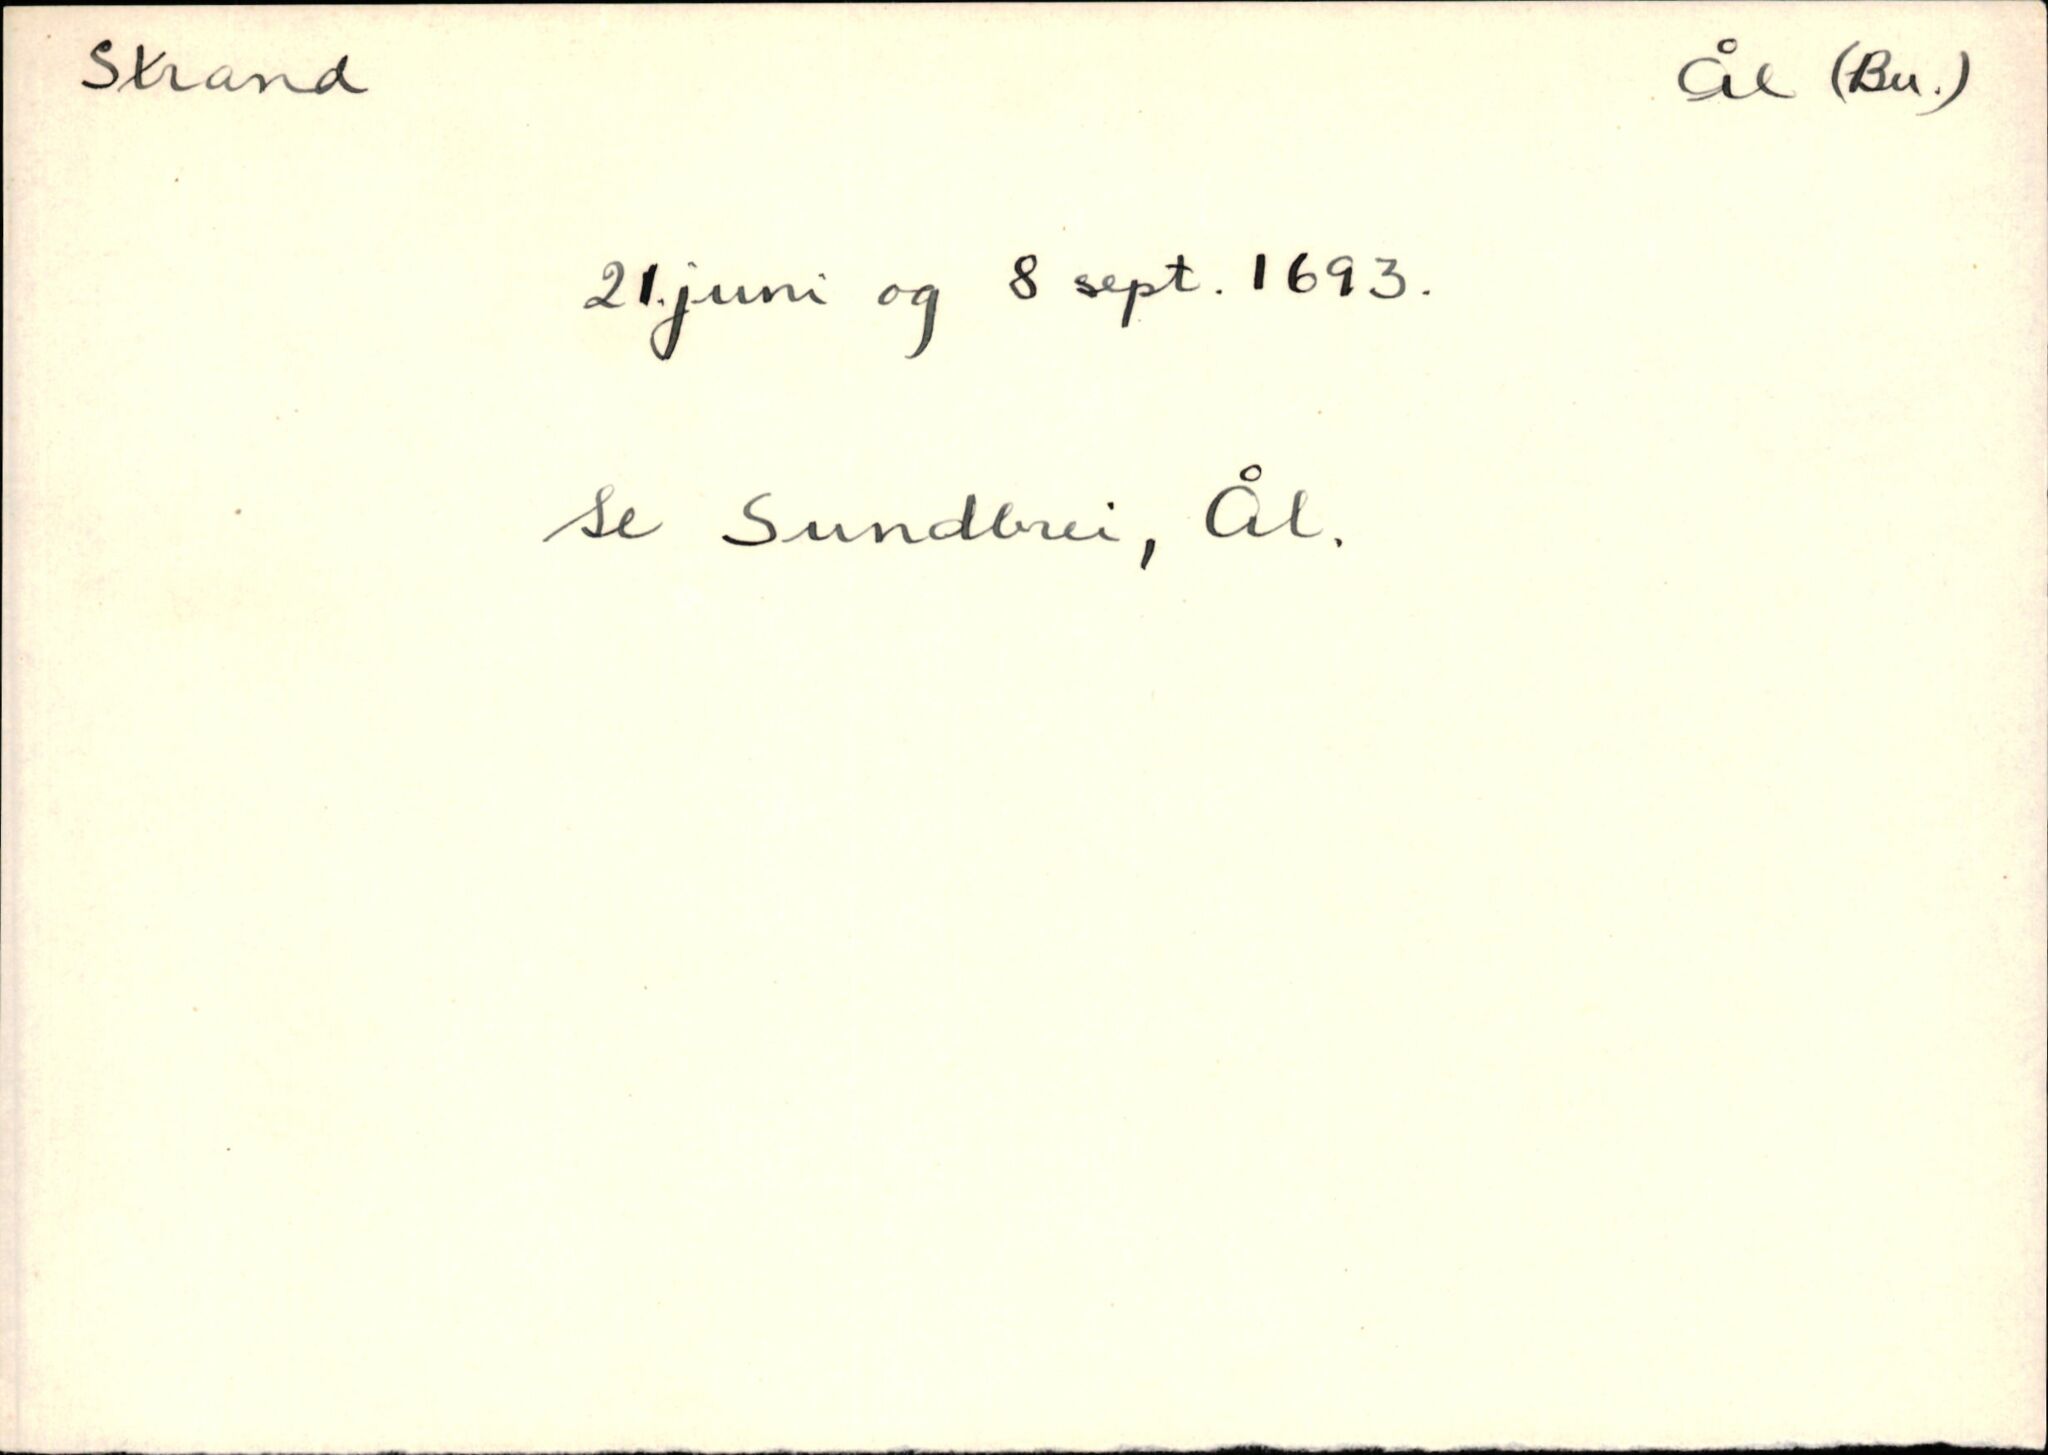 Strand Ål (Bu.)
21. juni og 8 sept. 1693.
Se Sundbrei, Ål.